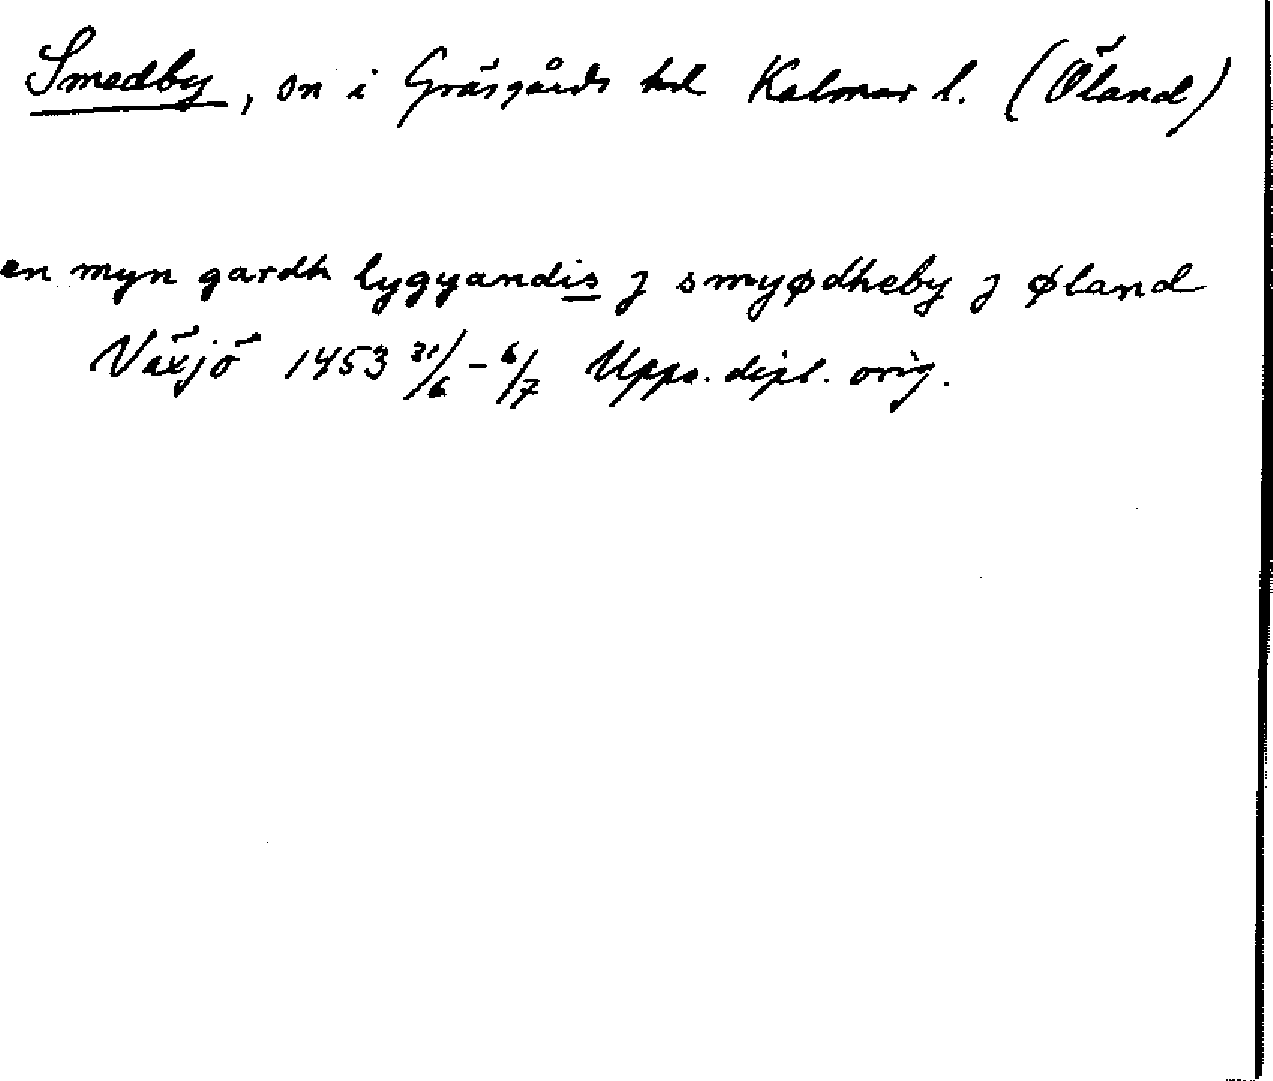 Smedby, on i Gräsgårds hd Kalmar l. (Öland)
en myn gardh lygyandis j smyødheby j øland
Växjö 1453 21/6 - 6/7 Upps. dipl. orig.